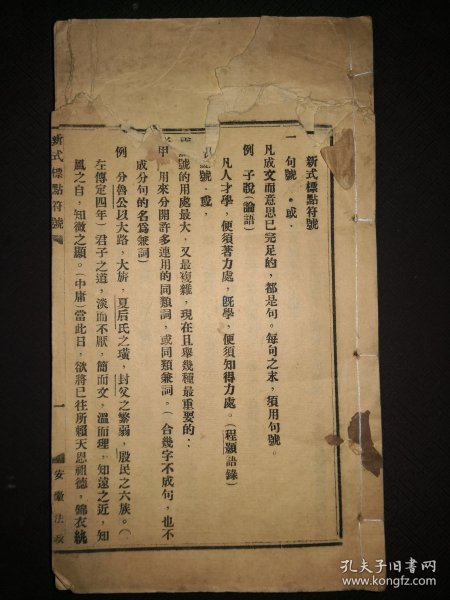 新式標點符號
一 句號 。或．
凡成文而意思已完足的，都是句。每句之末，須用句號。
例 子說（論語）
凡人才學，便須著力處，旣學，便須知得力處。（程顥語錄）
號，或，
號的用處最大，又最複雜，現在且舉幾種最重要的：
甲 用來分開許多連用的同類詞，或同類兼詞。（合幾字不成句，也不
成分句的名爲兼詞）
例 分魯公以大路，大旂，夏后氏之璜，封父之繁弱，殷民之六族。（
左傳定四年）君子之道，淡而不厭，簡而文，溫而理，知遠之近，知
風之自，知微之顯。（中庸）當此日，欲將已往所賴天恩祖德，錦衣紈
新式標點符號
一
安徽法政
孔夫子旧书网
www.kongfz.com